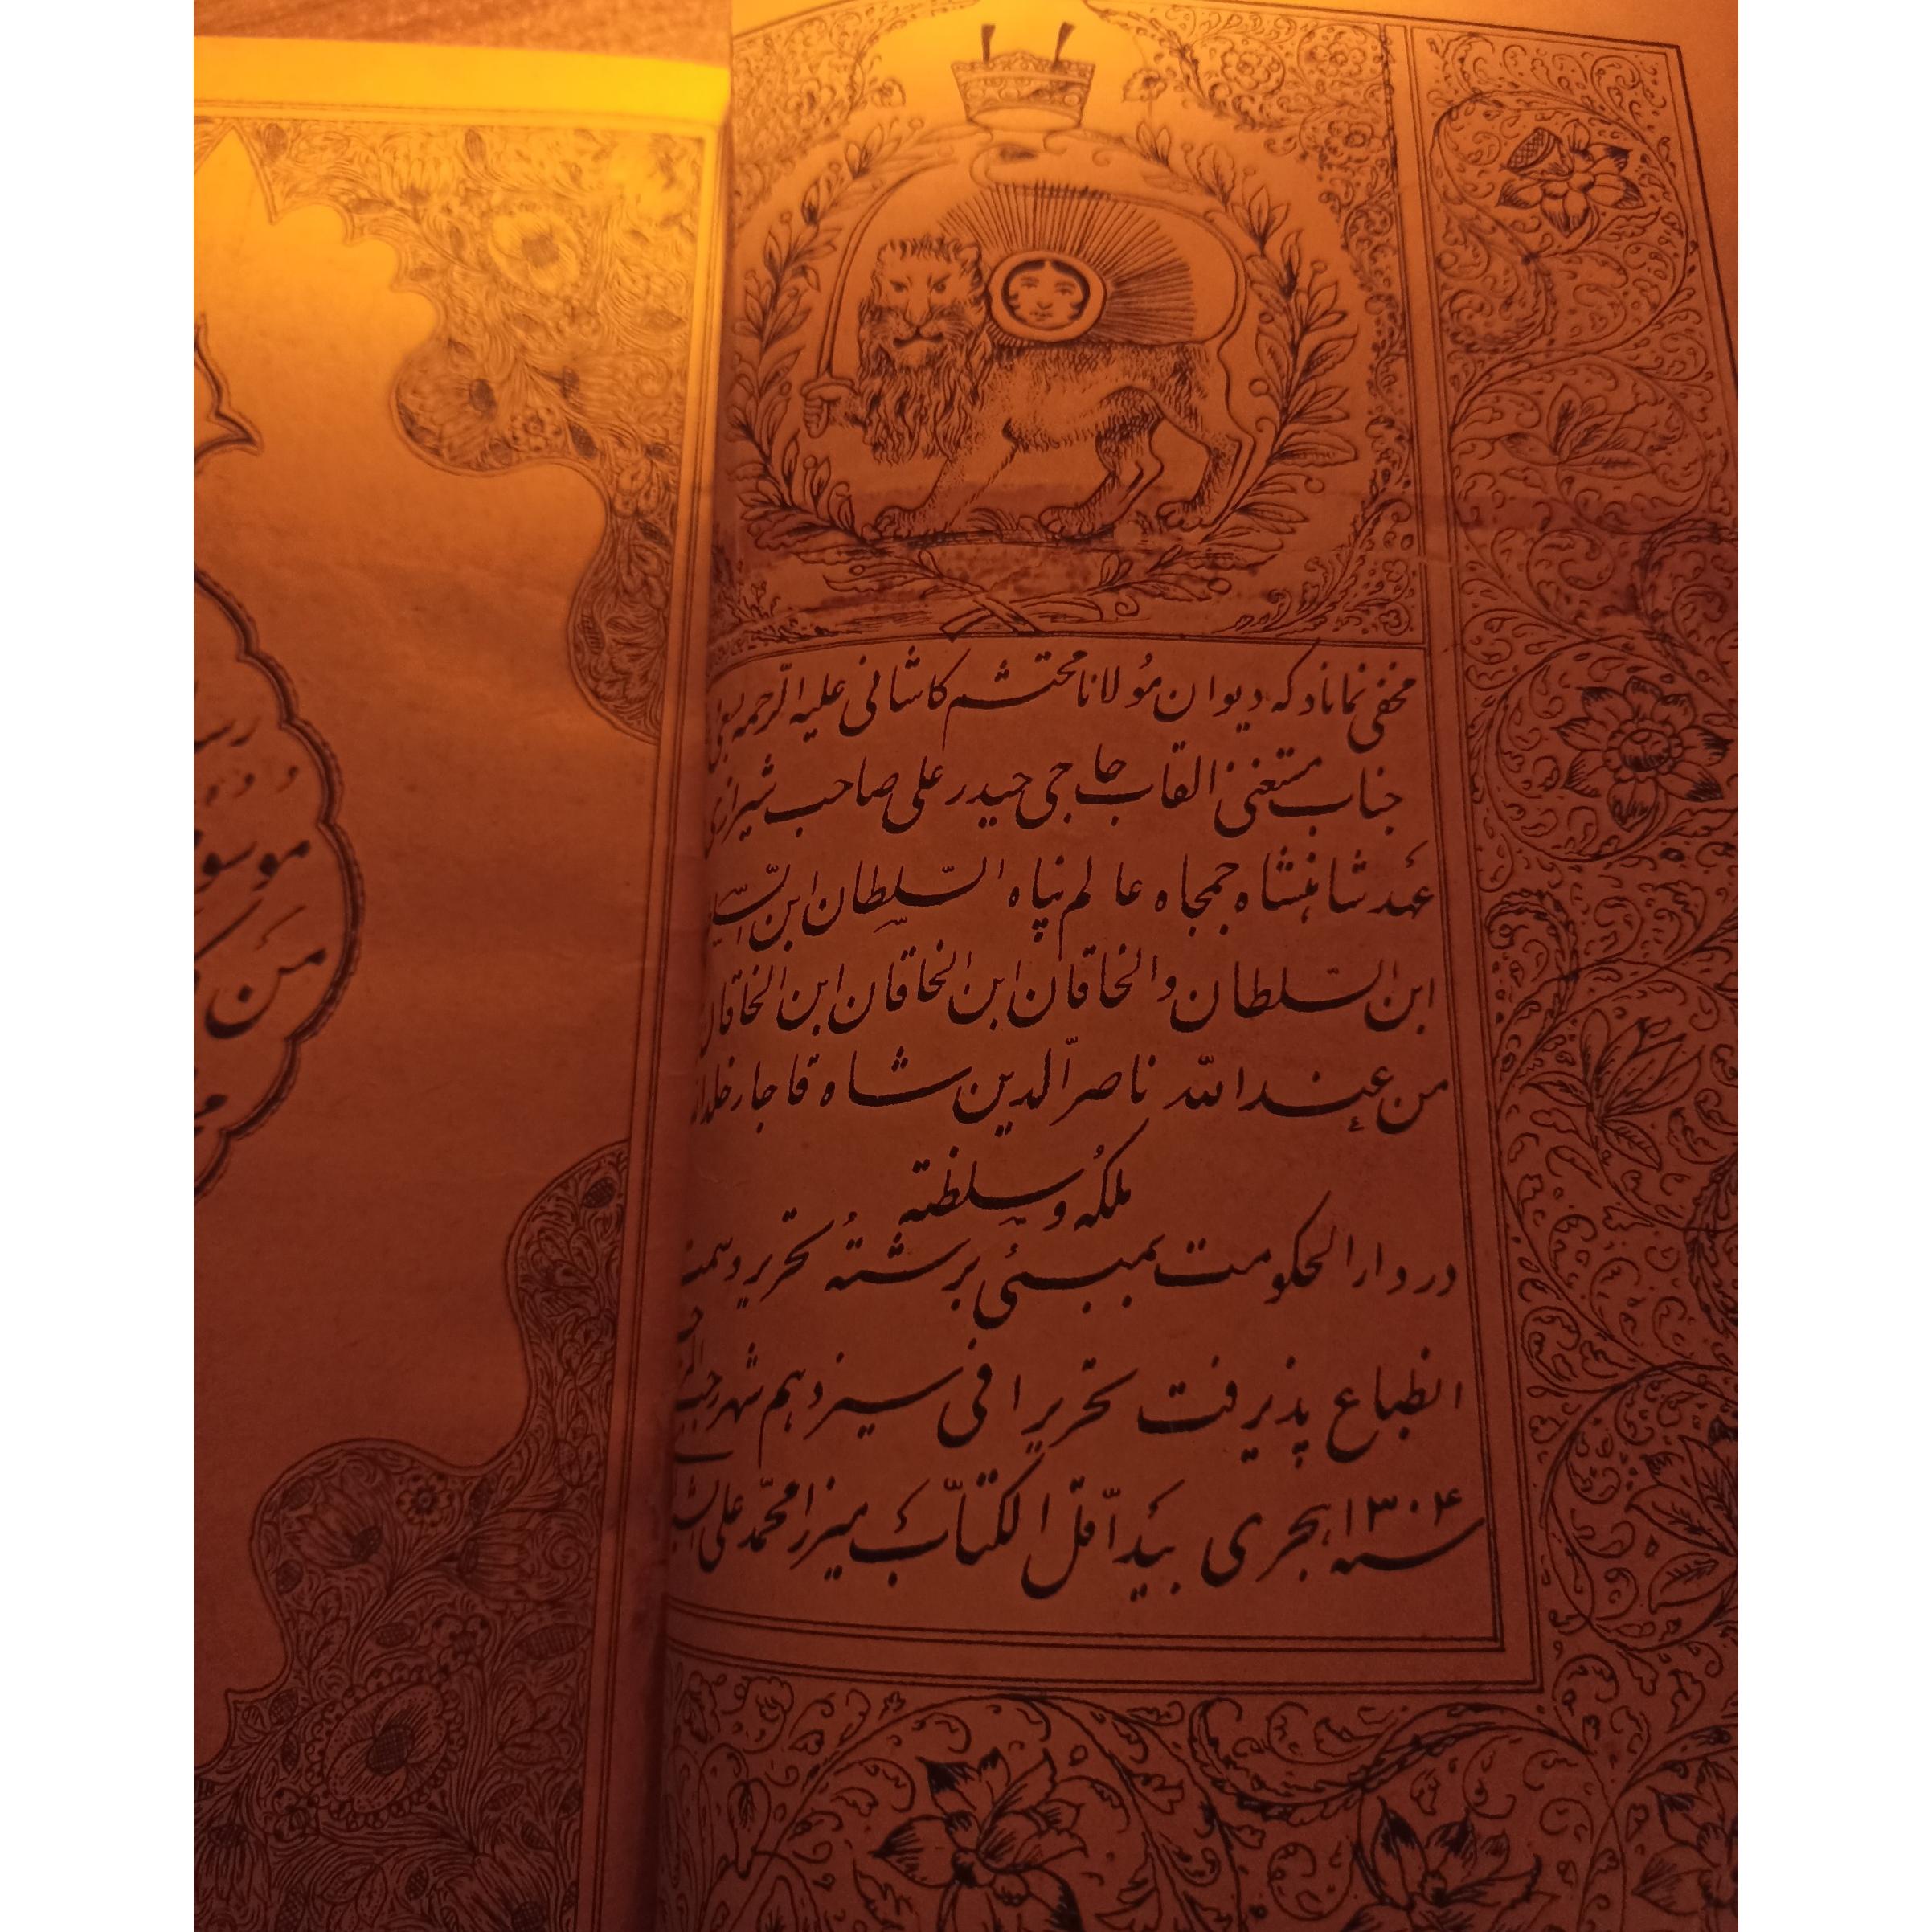 مخفی نماناد که دیوان مولانا محتشم کاشانی علیه الرّحمه
جناب مستغنی القاب حاجی حیدر علی صاحب شیرازی
عهد شاهنشاه جمجاه عالم پناه السّلطان ابن
ابن السّلطان والخاقان ابن الخاقان ابن الخاقان
من عند اللّه ناصر الّدین شاه قاجار
ملکه و سلطنته
در دار الحکومت بمبئی برشتهٔ تحریر و
انطباع پذیرفت تحریرا فی سیزدهم شهر
سنه ۱۳۰۴ هجری بید اقلّ الکتّاب میرزا محمّد علی
من